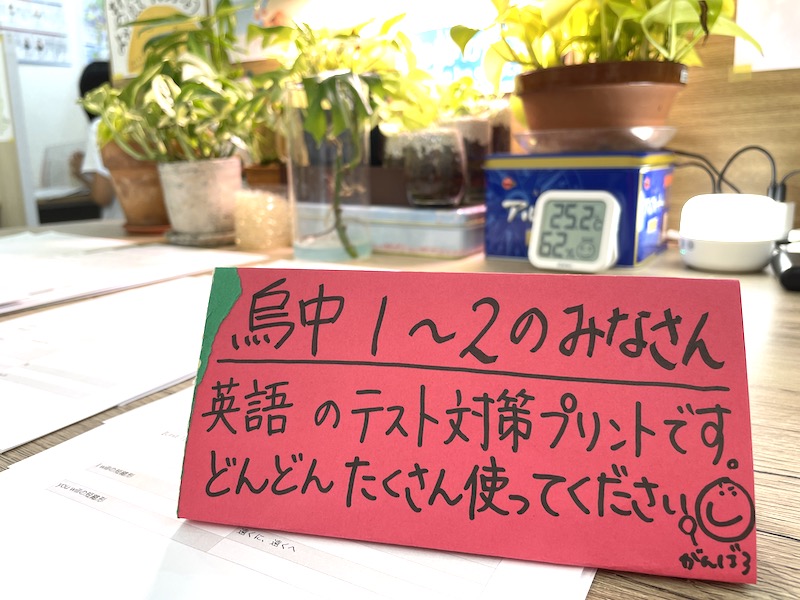 烏中1～2のみなさん
英語のテスト対策プリントです。
どんどんたくさん使ってください。
がんばろ
25.2℃
62%
アル
I willの短縮形
you willの短縮形
遠くで、遠くへ